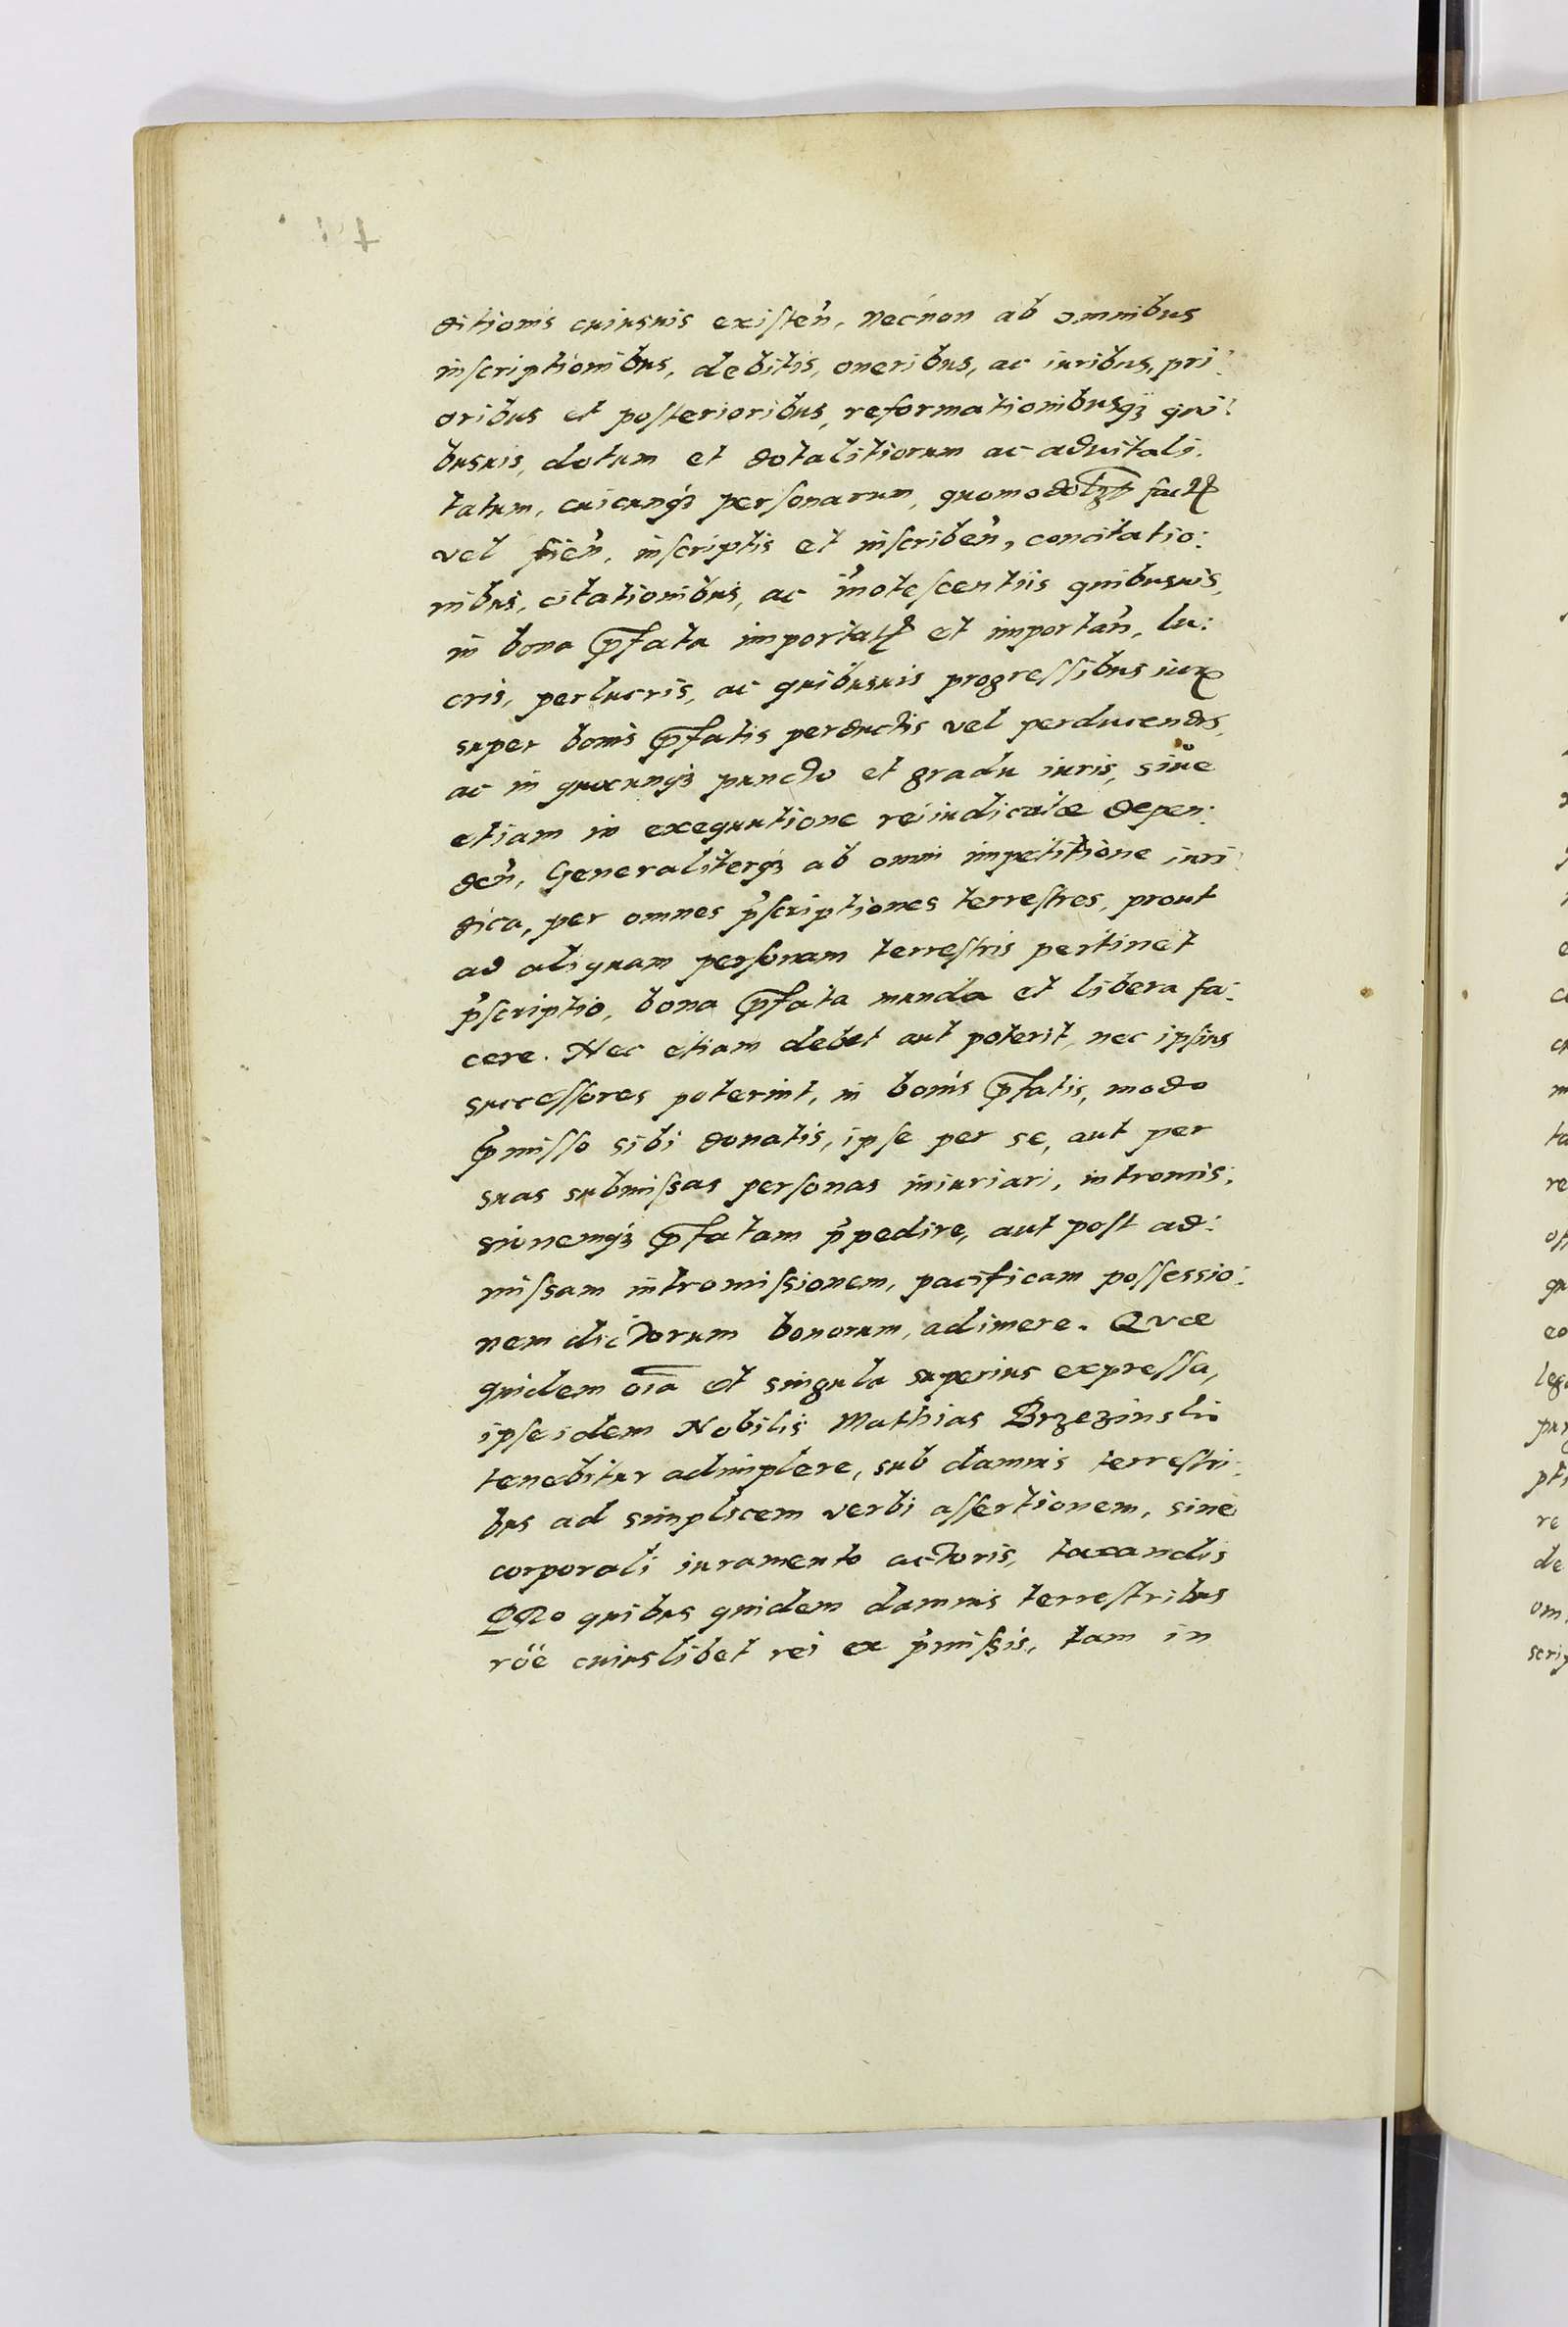 ditionis cuiusuis existen̄, necnon ab omnibus
inscriptionibus, debitis, oneribus, ac iuribus, pri:
oribus et posterioribus, reformationibusqꝫ qui:
busuis, dotum et dotalitiorum ac aduitali:
tatum, cuicunqꝫ personarum,
vel fien̄, inscriptis et inscriben̄, concitatio:
nibus, citationibus, ac in̄otescentiis quibusuis,
in bona p̄fata importat̄ et importan̄, lu:
cris, perlucris, ac quibusuis progressibus iurꝭ
super bonis p̄fatis perductis vel perducendis,
ac in quocunqꝫ puncto et gradu iuris, siue
etiam in exequutione rei iudicatæ depen:
den̄, Generaliterqꝫ ab omni impetitione iuri:
dica, per omnes p̄scriptiones terrestres, prout
ad aliquam personam terrestris pertinet
p̄scriptio, bona p̄fata munda et libera fa:
cere. Nec etiam debet aut poterit, nec ipsius
successores poterint, in bonis p̄fatis, modo
p̄misso sibi donatis, ipse per se, aut per
suas submissas personas iniuriari, intromis:
sionemqꝫ p̄fatam p̄pedire, aut post ad:
missam intromissionem, pacificam possessio:
nem dictorum bonorum, adimere. Quæ
quidem oīa et singula superius expressa,
ipse idem Nobilis Mathias Brzezinski
tenebitur adimplere, sub damnis terrestri:
bus ad simplicem verbi assertionem, sine
corporali iuramento actoris, taxandis
PRo quibus quidem damnis terrestribus
rōe cuiuslibet rei ex p̄missis, tam in